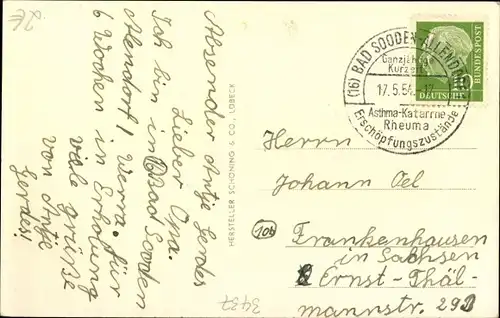 Absender Antje Gerdes
Lieber Opa.
Ich bin in Bad Sooden
Alendorf / Werra. für
6 Wochen in Erholung
viele grüße
von Antje
Gerdes!
HERSTELLER SCHÖNING & CO., LÜBECK
(16) BAD SOODEN-ALLENDORF
Ganzjährige
Kurzeit
17.5.54.-17
Asthma-Katarrhe
Rheuma
Erschöpfungszustände
DEUTSCHE BUNDESPOST
Herrn
Johann Oel
(10b)
Frankenhausen
in Sachsen
Ernst-Thäl-
mannstr. 29
3437